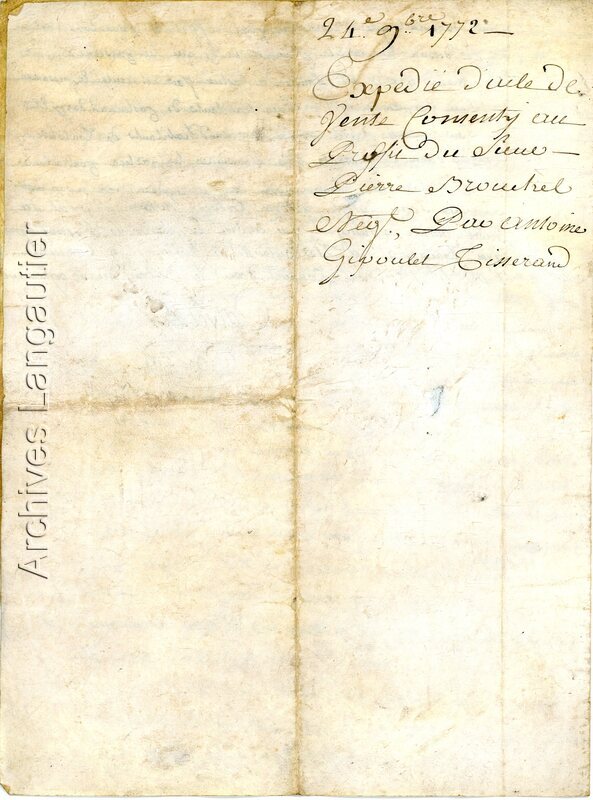 24.e 9.bre 1772 —
Expedié d'acte de
Vente Consenty au
Proffit du Sieur —
Pierre Brouchel
Neg.t, Par antoine
Gipoulet Tisserand
Archives Langautier